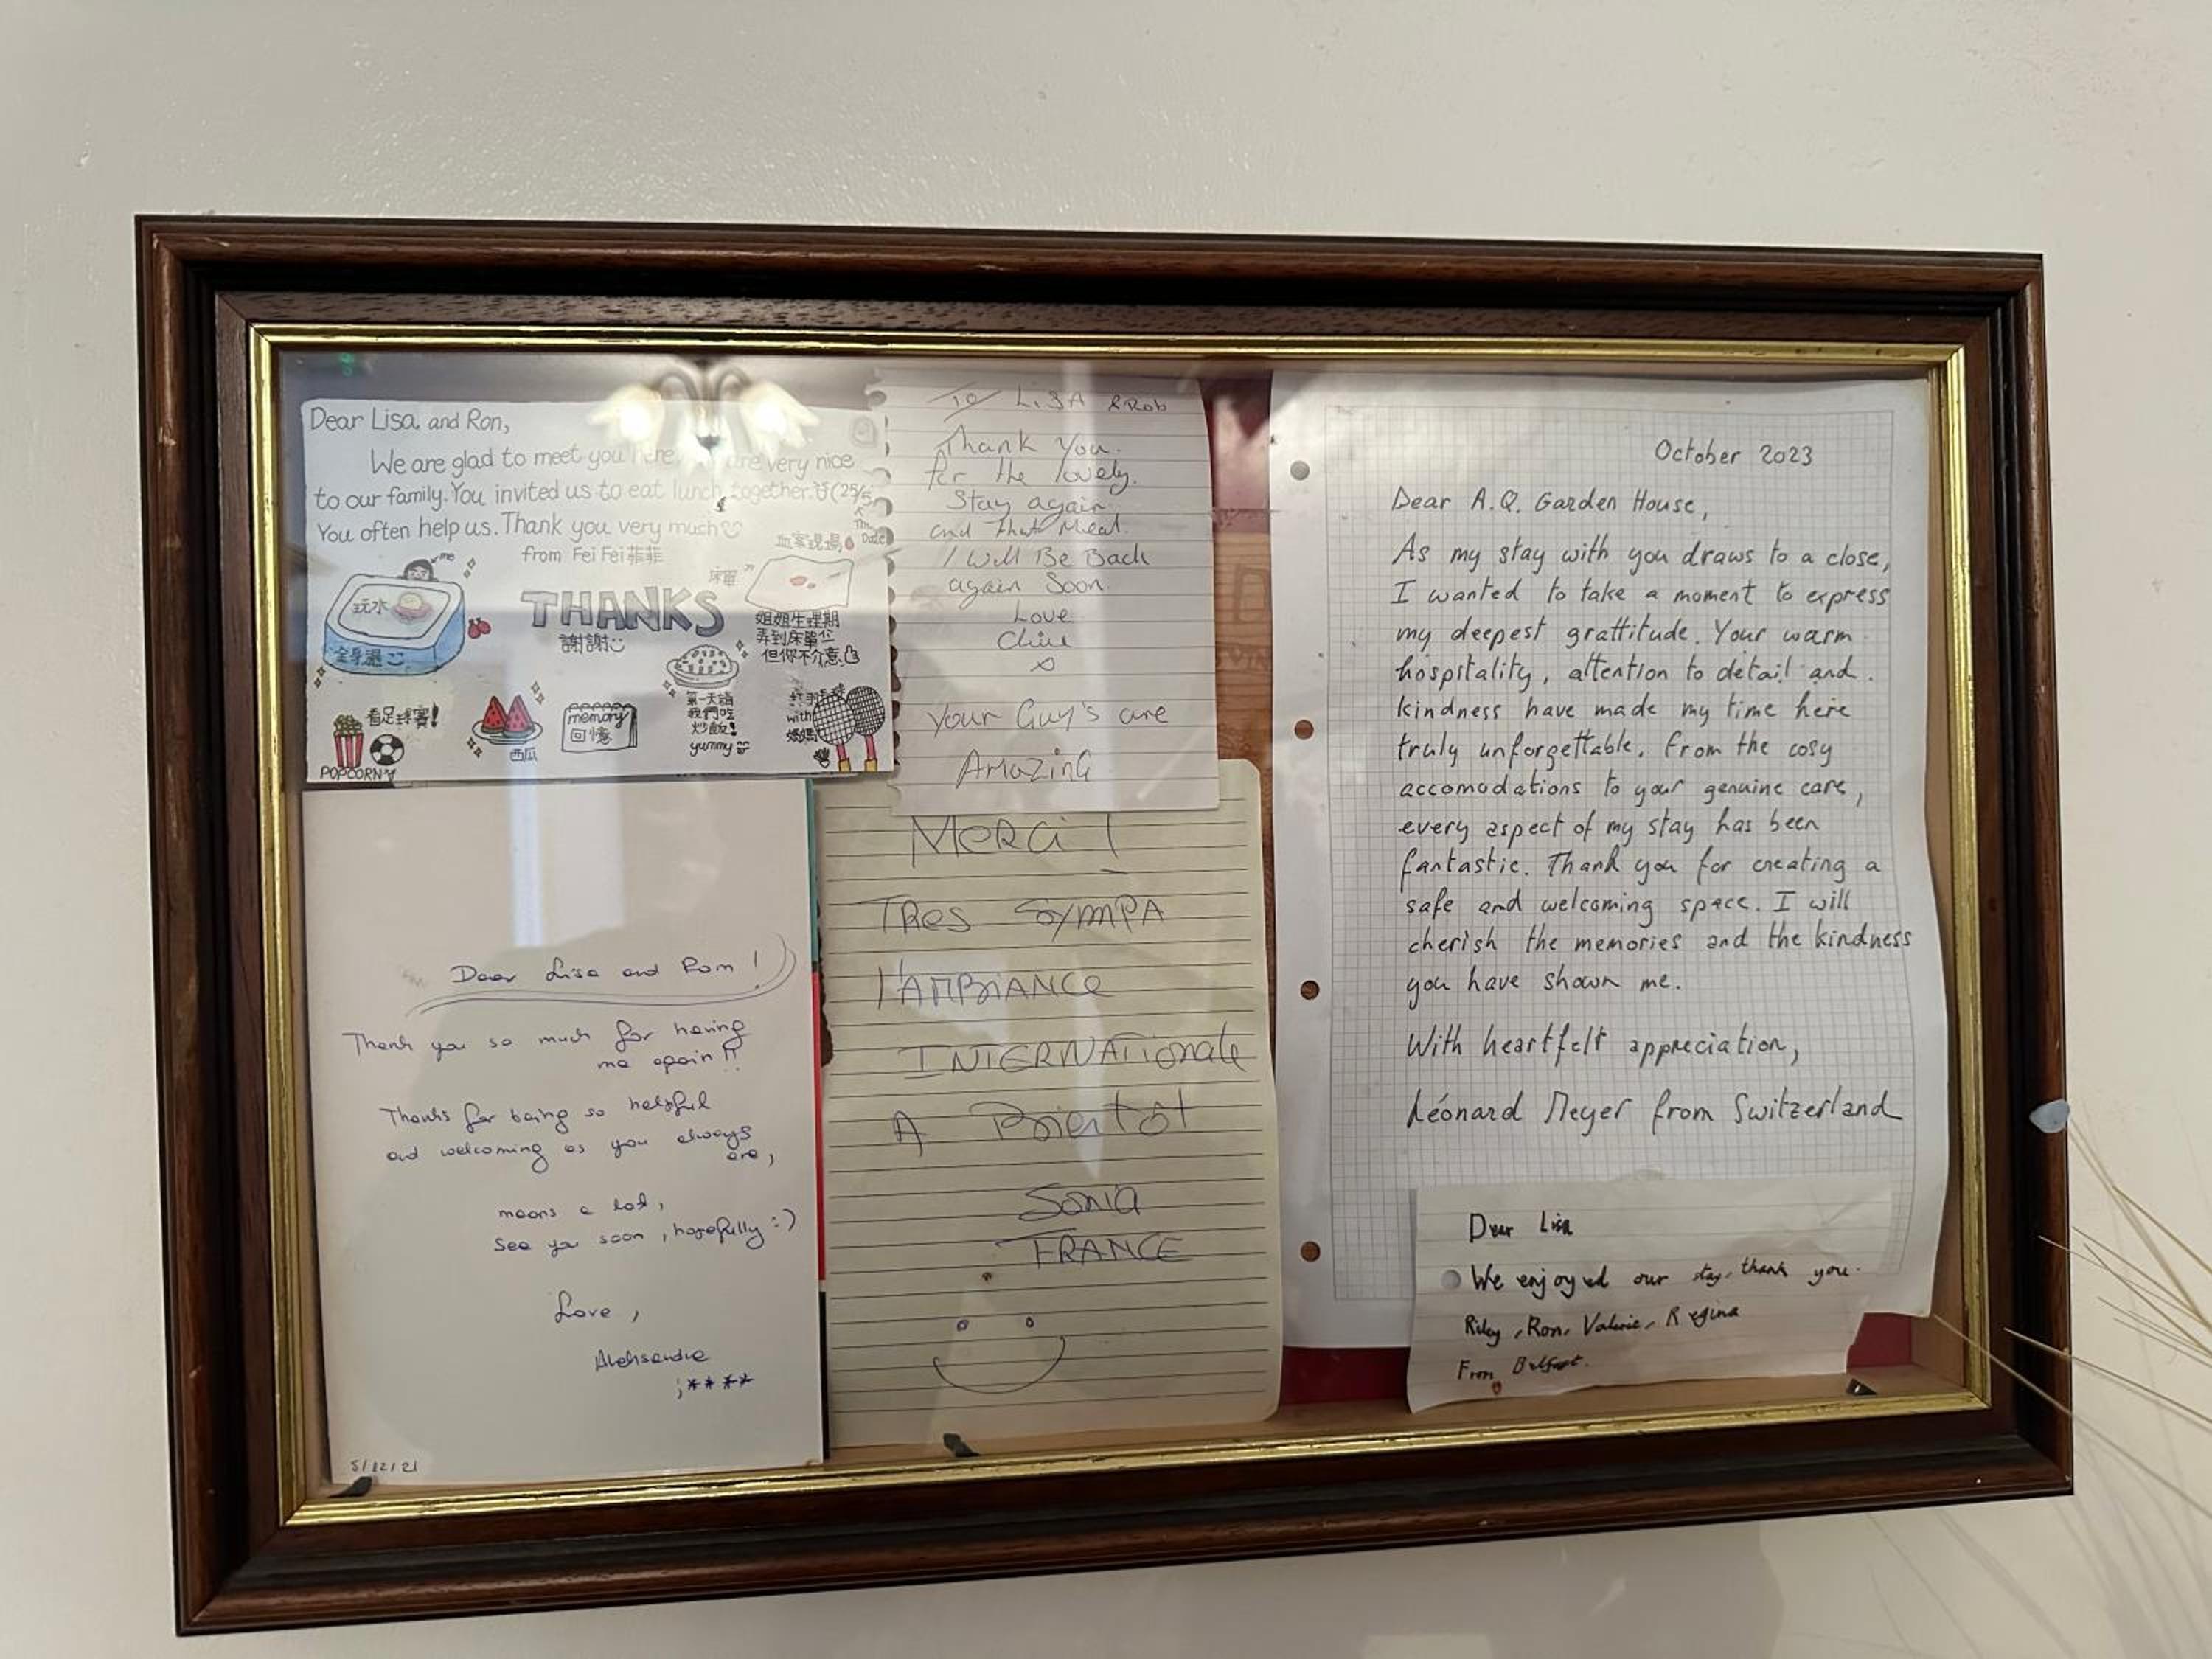 Dear Lisa and Ron,
We are glad to meet you here. are very nice
to our family. You invited us to eat lunch together. (25/5
You often help us. Thank you very much
The Date
from Fei Fei 菲菲
me
玩水
全身濕
THANKS
謝謝
血案現場
床單
姐姐生理期
弄到床單上
但你不介意
看足球賽!
POPCORN
西瓜
memory
回憶
第一天請
我們吃
炒飯!
yummy
打羽毛球
with
媽媽
To LISA & Rob
Thank You.
for the lovely.
Stay again
and that Meal.
I Will Be Back
again Soon.
Love
Your Guy's are
AmazinG
Dear Lisa and Rom!
Thank you so much for having
me again!!
Thanks for being so helpful
and welcoming as you always
are,
means a lot,
see you soon, hopefully :)
Love,
Aleksandra
;****
5/12/21
MERCi!
TRes SympA
l'AMBiANCe
INTERNATionale
A Bientôt
Sonia
FRANCE
October 2023
Dear A.Q. Garden House,
As my stay with you draws to a close,
I wanted to take a moment to express
my deepest grattitude. Your warm
hospitality, attention to detail and
kindness have made my time here
truly unforgettable. From the cosy
accomodations to your genuine care,
every aspect of my stay has been
fantastic. Thank you for creating a
safe and welcoming space. I will
cherish the memories and the kindness
you have shown me.
With heartfelt appreciation,
Léonard Meyer from Switzerland
Dear Lisa
We enjoyed our stay, thank you.
Riley, Ron, Valerie, Regina
From Belfast.